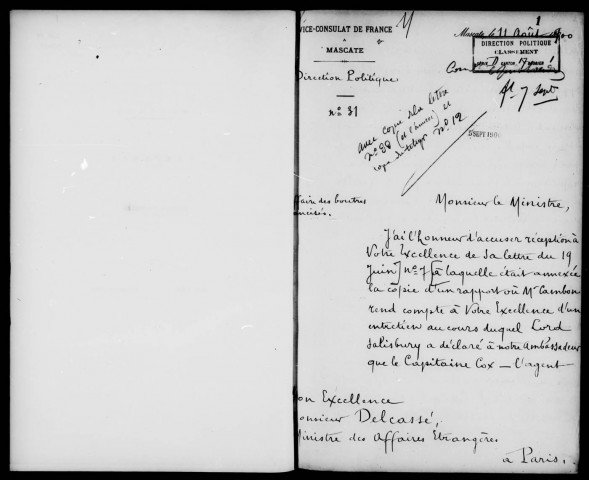 1
VICE-CONSULAT DE FRANCE
À
MASCATE
Mascate le 11 Août 1900
DIRECTION POLITIQUE
CLASSEMENT
Direction Politique
no: 31
avec copie de la lettre
no 30 (et l'annexe) et
copie du telegr no 12
7 Sept
5 SEPT 1900
ffaire des boutres
ancisés.
Monsieur le Ministre,
J'ai l'honneur d'accuser réception à
Votre Excellence de sa lettre du 19
Juin no 7 à laquelle était annexée
la copie d'un rapport où Mr Cambon
rend compte à Votre Excellence d'un
entretien au cours duquel Lord
Salisbury a déclaré à notre Ambassadeur
que le Capitaine Cox — l'agent —
on Excellence
onsieur Delcassé,
inistre des Affaires Etrangères
à Paris.